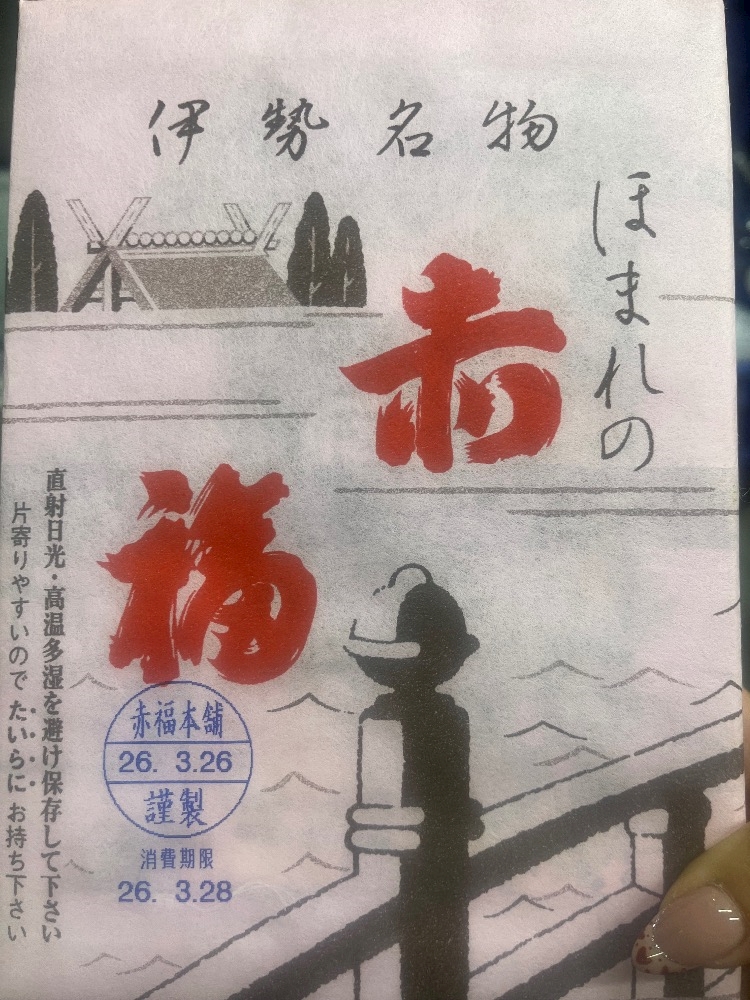 伊勢名物
ほまれの
赤
福
直射日光・高温多湿を避け保存して下さい
片寄りやすいので たいらに お持ち下さい
赤福本舗
26. 3.26
謹製
消費期限
26. 3.28